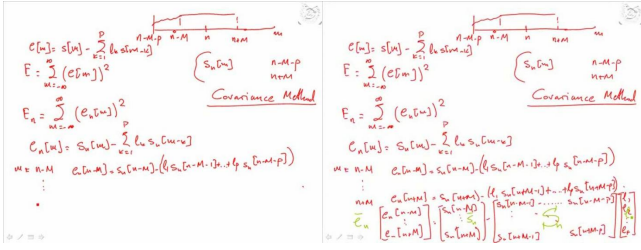 n-M-p n-M n n+M m
e[m] = s[m] - Σ_{k=1}^{p} l_k s[m-k]
E = Σ_{m=-∞}^{∞} (e[m])²
{ s_n[m] n-M-p
n+M
Covariance Method
E_n = Σ_{m=-∞}^{∞} (e_n[m])²
e_n[m] = s_n[m] - Σ_{k=1}^{p} l_k s_n[m-k]
m = n-M e_n[n-M] = s_n[n-M] - (l_1 s_n[n-M-1] + ... + l_p s_n[n-M-p])
⋮
n-M-p n-M n n+M m
e[m] = s[m] - Σ_{k=1}^{p} l_k s[m-k]
E = Σ_{m=-∞}^{∞} (e[m])²
{ s_n[m] n-M-p
n+M
Covariance Method
E_n = Σ_{m=-∞}^{∞} (e_n[m])²
e_n[m] = s_n[m] - Σ_{k=1}^{p} l_k s_n[m-k]
m = n-M e_n[n-M] = s_n[n-M] - (l_1 s_n[n-M-1] + ... + l_p s_n[n-M-p])
⋮
n+M e_n[n+M] = s_n[n+M] - (l_1 s_n[n+M-1] + ... + l_p s_n[n+M-p])
e_n [e_n[n-M] ⋮ e_n[n+M]] = [s_n[n-M] ⋮ s_n[n+M]] - [s_n[n-M-1] ... s_n[n-M-p] ⋮ s_n[n+M-1] s_n[n+M-p]] [l_1 l_2 ⋮ l_p]